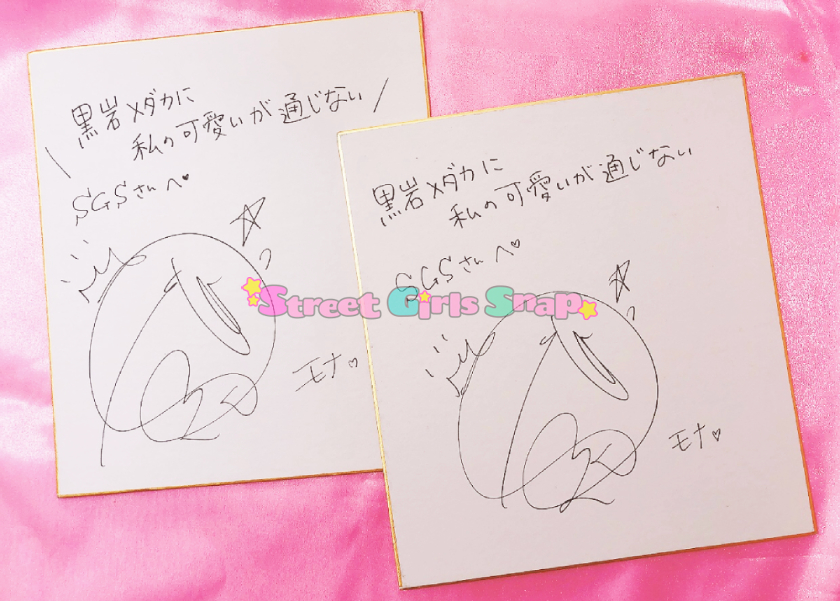 黒岩メダカに
私の可愛いが通じない
SGSさんへ♡
モナ♡
黒岩メダカに
私の可愛いが通じない
SGSさんへ♡
モナ♡
Street Girls Snap